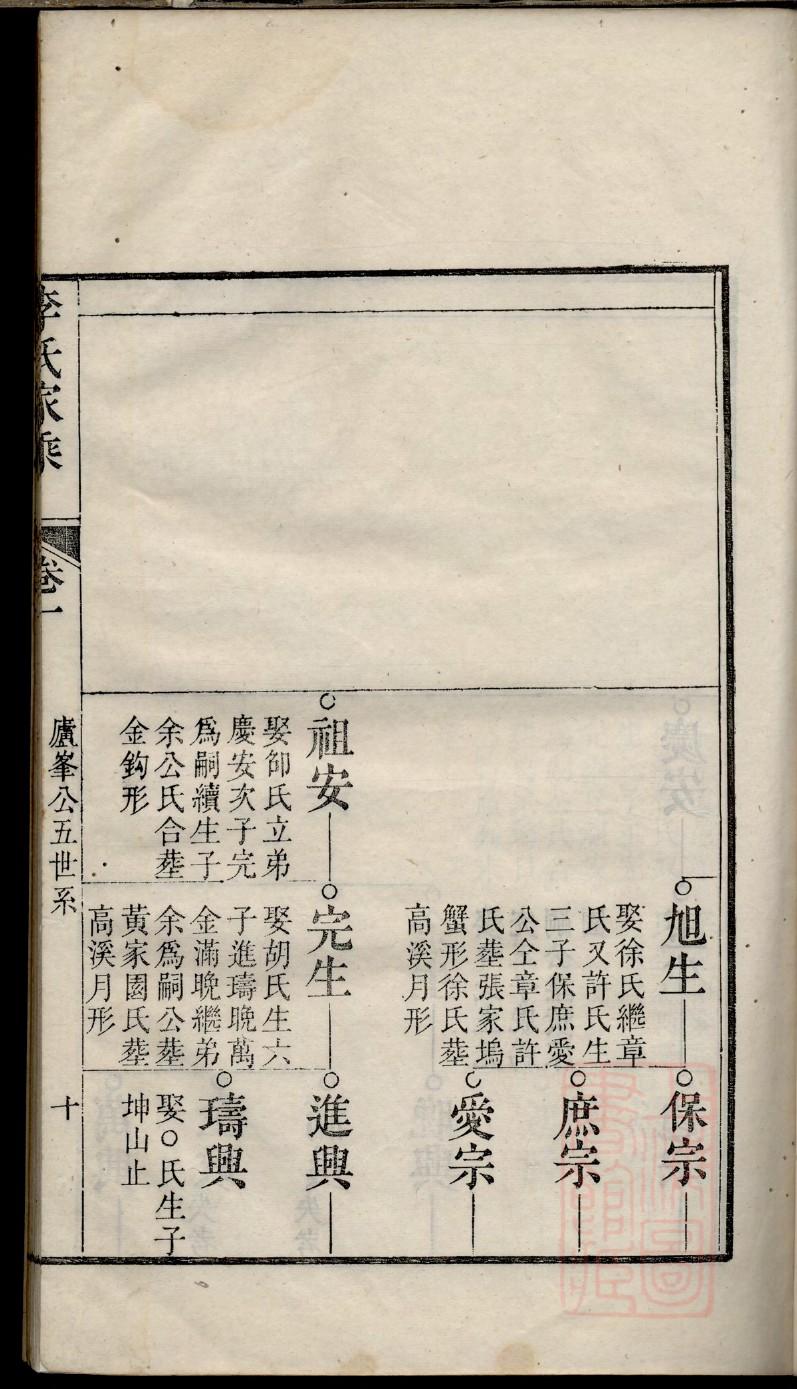 旭生
娶徐氏繼章
氏又許氏生
三子保庶愛
公仝章氏許
氏塟張家塢
蟹形徐氏塟
高溪月形
保宗
庶宗
愛宗
祖安
娶御氏立弟
慶安次子完
爲嗣續生子
余公氏合塟
金鈎形
完生
娶胡氏生六
子進璹晚萬
金滿晚繼弟
余爲嗣公塟
黃家園氏塟
高溪月形
進興
璹興
娶○氏生子
坤山止
李氏家乘
卷一
廬峯公五世系
十